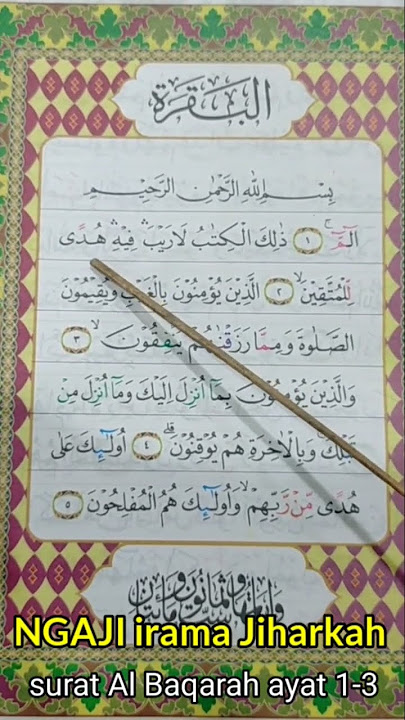 البقرة
بِسْمِ اللهِ الرَّحْمٰنِ الرَّحِيْمِ
الۤمّۤ ۚ ١ ذٰلِكَ الْكِتٰبُ لَارَيْبَ ۛ فِيْهِ ۛ هُدًى
لِّلْمُتَّقِيْنَ ۙ ٢ الَّذِيْنَ يُؤْمِنُوْنَ بِالْغَيْبِ وَيُقِيْمُوْنَ
الصَّلٰوةَ وَمِمَّا رَزَقْنٰهُمْ يُنْفِقُوْنَ ۙ ٣
وَالَّذِيْنَ يُؤْمِنُوْنَ بِمَآ اُنْزِلَ اِلَيْكَ وَمَآ اُنْزِلَ مِنْ
قَبْلِكَ ۚ وَبِالْاٰخِرَةِ هُمْ يُوْقِنُوْنَ ۗ ٤ اُولٰۤىِٕكَ عَلٰى
هُدًى مِّنْ رَّبِّهِمْ ۙ وَاُولٰۤىِٕكَ هُمُ الْمُفْلِحُوْنَ ٥
NGAJI irama Jiharkah
surat Al Baqarah ayat 1-3